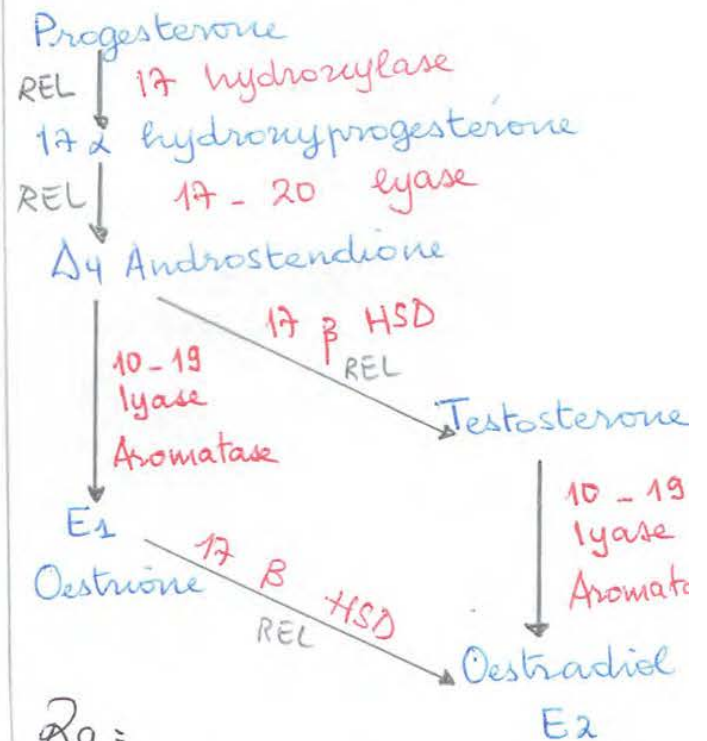 Progesterone
REL 17 hydroxylase
17 α hydroxyprogestérone
REL 17 - 20 lyase
Δ4 Androstendione
17 β HSD
REL
10 - 19
lyase
Aromatase
Testosterone
10 - 19
lyase
Aromata
E1
Oestrione
17 β HSD
REL
Oestradiol
E2
Rq :